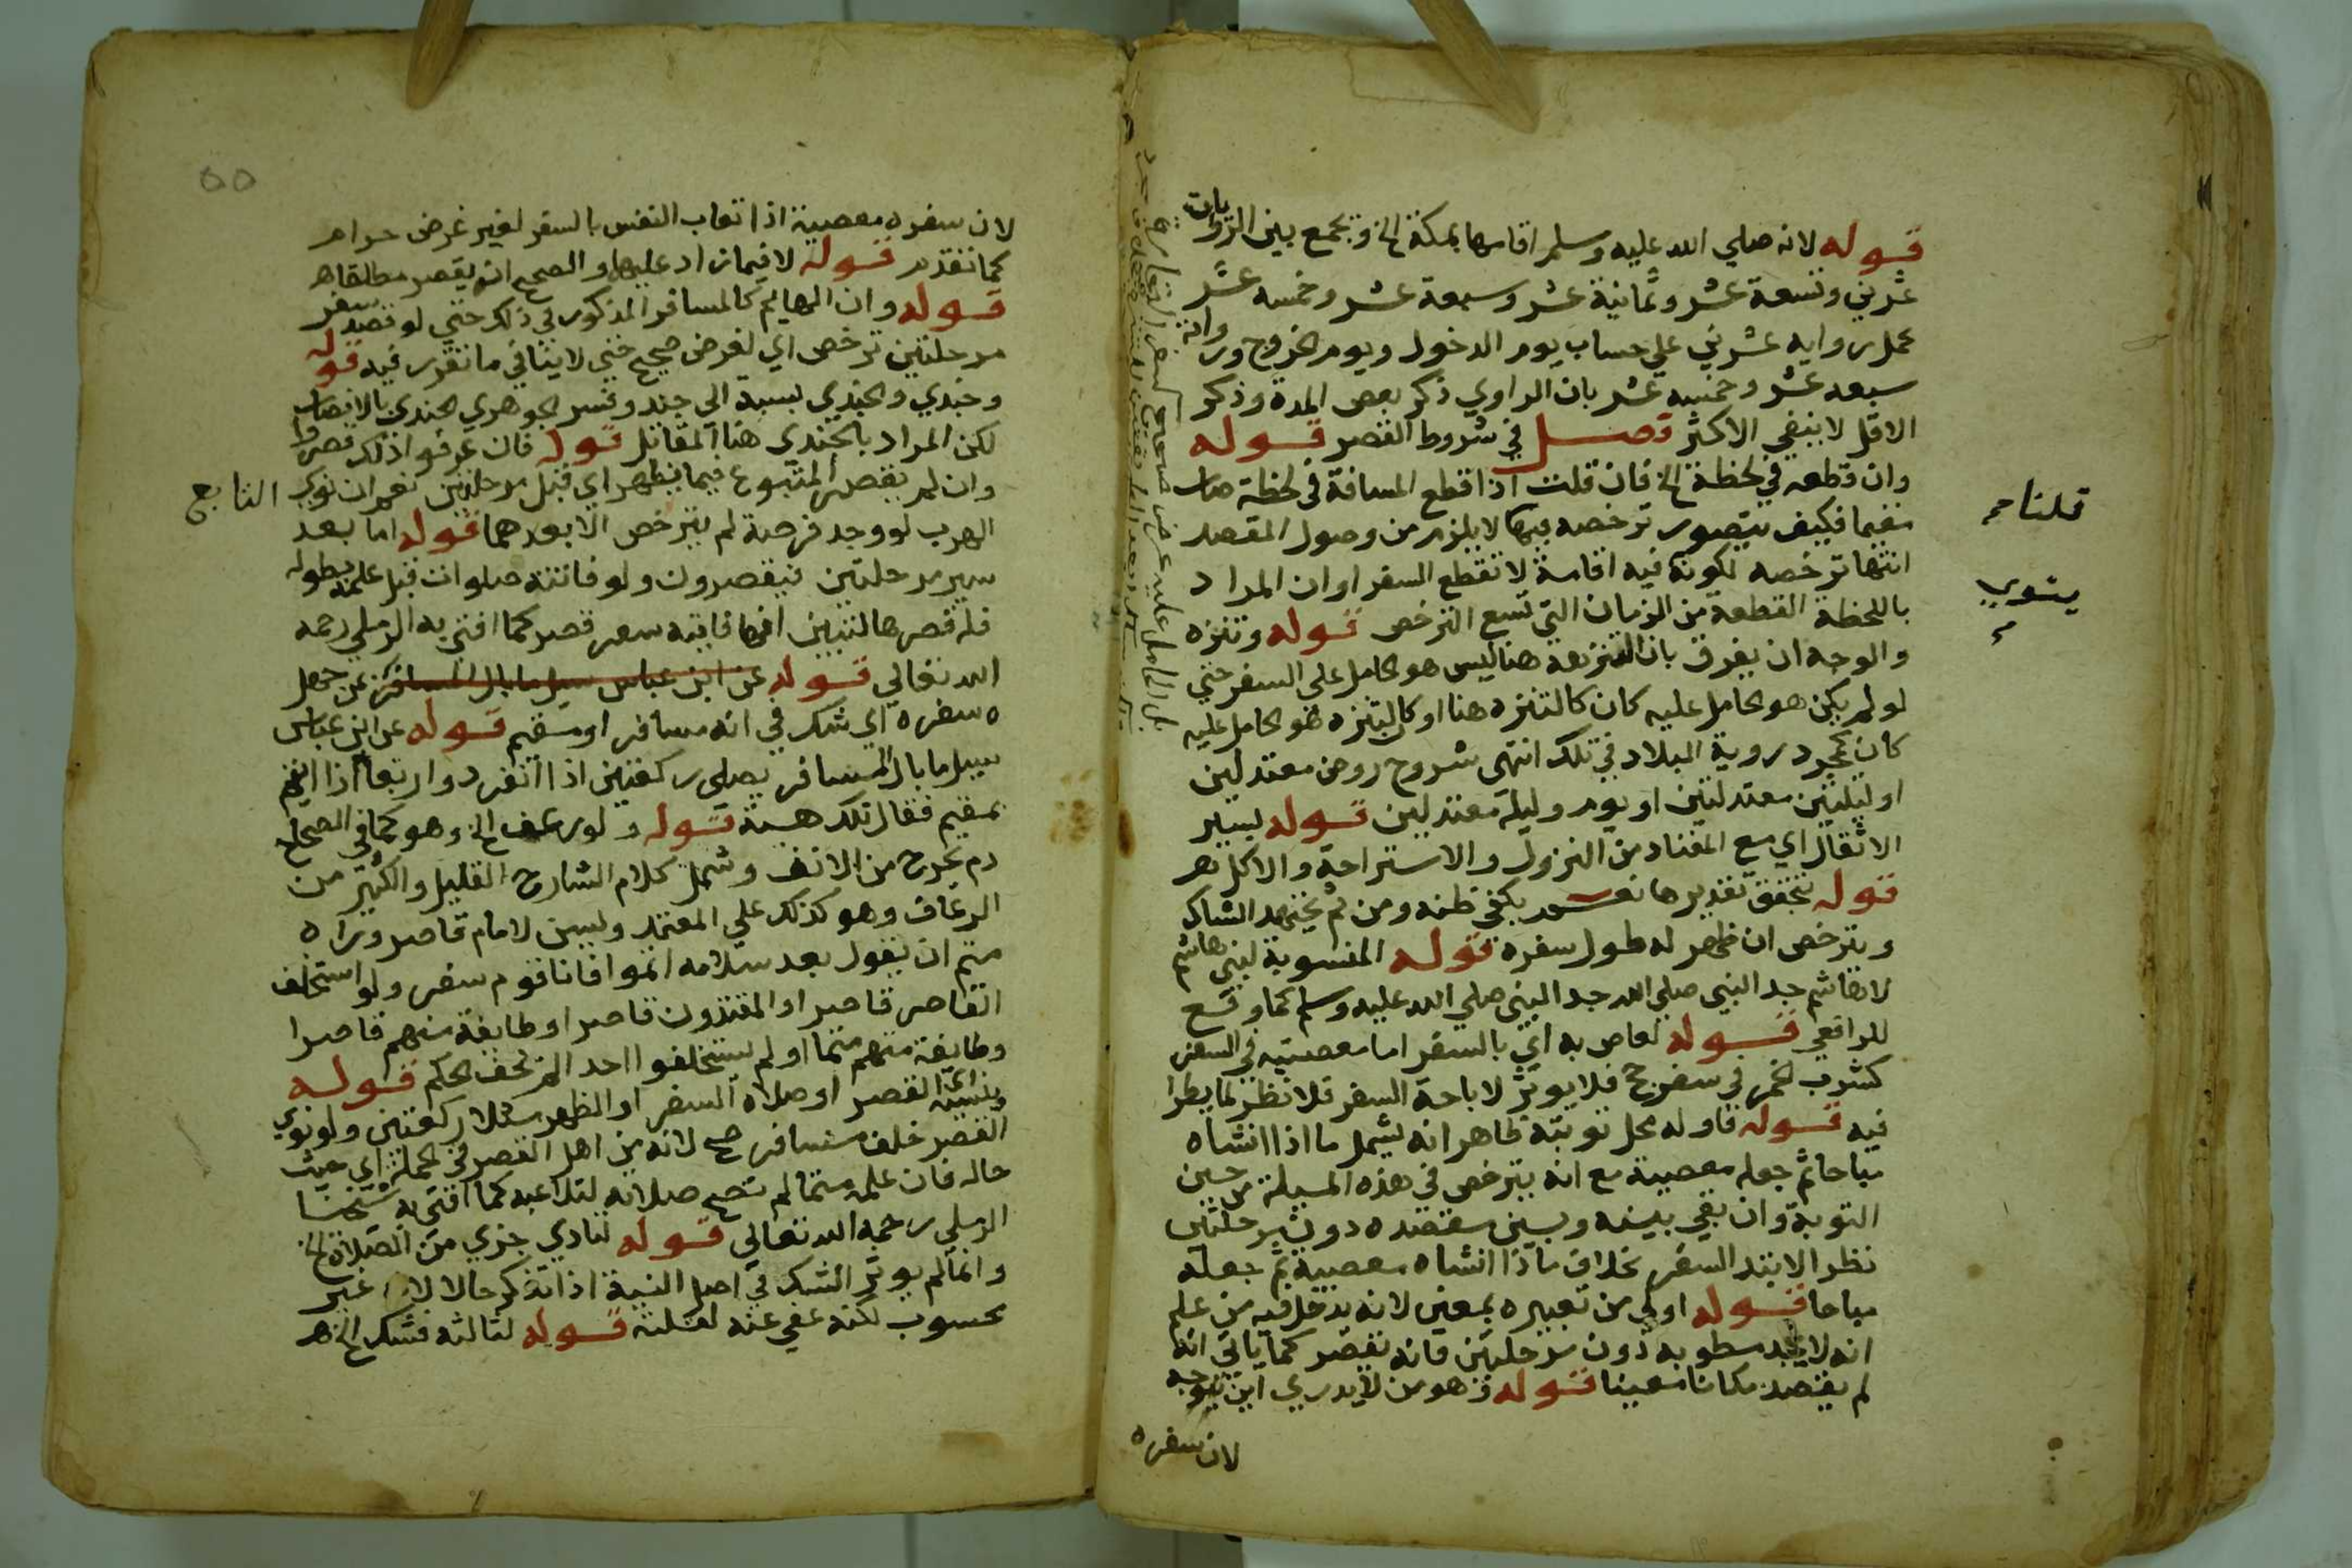 قوله لانه صلي الله عليه وسلم اقامها بمكة الخ ويجمع بين الروايات
عشرين وتسعة عشر وثمانية عشر وسبعة عشر وخمسه عشر
بحمل رواية عشرين علي حساب يوم الدخول ويوم الخروج ورواية
سبعه عشر وخمسه عشر بان الراوي ذكر بعض المدة وذكر
الاقل لا ينفي الاكثر فصل في شروط القصر قوله
وان قطعه في لحظة الخ فان قلت اذا قطع المسافة في لحظة صار
مقيما فكيف يتصور ترخصه فيها لا يلزم من وصول المقصد
قلنا
انتها ترخصه لكونه فيه اقامة لا تقطع السفر او ان المراد
باللحظة القطعة من الزمان التي تسع الترخص قوله وتنزه
ينوي
والوجه ان يفرق بان التنزه هنا ليس هو الحامل علي السفر حتي
لو لم يكن هو الحامل عليه كان كالتنزه هنا او كان التنزه هو الحامل عليه
كان كمجرد روية البلاد في تلك انتهى شروح روض معتدلين
او ليلتين معتدلتين او يوم وليلة معتدلين قوله بسير
الاثقال اي مع المعتاد من النزول والاستراحة والاكل
قوله تحقق تقديرها يكفي ظنه ومن ثم يجتهد الشاك
ويترخص ان ظهر له طول سفره قوله المنسوبة لبني هاشم
لا هاشم جد النبي صلي الله جد النبي صلي الله عليه وسلم كما وقع
للرافعي قوله لعاص به اي بالسفر اما معصيته في السفر
كشرب الخمر في سفر حج فلا يوثر لاباحة السفر فلا نظر لما يطرا
فيه قوله فاوله محل توبته ظاهر انه يشمل ما اذا انشاه
مباحا ثم جعله معصية مع انه يترخص في هذه المسيلة من حين
التوبة وان بقي بينه وبين مقصده دون مرحلتين
نظرا لابتدا السفر بخلاف ما اذا انشاه معصية ثم جعله
مباحا قوله اولي من تعبيره بمعين لانه يدخل فيه من علم
انه لا يجد مطلوبه دون مرحلتين فانه يقصر كما ياتي انه
لم يقصد مكانا معينا قوله وهو من لا يدري اين يتوجه
لان سفره
لان سفره معصية اذ اتعاب النفس بالسفر لغير غرض حرام
كما تقدم قوله لا فيما زاد عليها والصحيح انه يقصر مطلقا
قوله وان الهايم كالمسافر المذكور في ذلك حتي لو قصد سفر
مرحلتين ترخص اي لغرض صحيح حتي لا ينافي ما تقرر فيه قوله
وجندي والجندي نسبة الي جند وفسر الجوهري الجندي بالانصار
لكن المراد بالجندي هنا المقاتل قوله فان عرفوا ذلك قصروا
وان لم يقصر المتبوع فيما يظهر اي قبل مرحلتين نعم ان نوي التابع
الهرب لو وجد فرصة لم يترخص الا بعدهما قوله اما بعد
سير مرحلتين فيقصرون ولو فاتته صلوات قبل علمه بطوله
فله قصرها لتبين انها فايته سفر قصر كما افتي به الرملي رحمه
الله تعالي قوله عن ابن عباس سيل ما بال المسافر عن جهل
سفره اي شك في انه مسافر او مقيم قوله عن ابن عباس
سيل ما بال المسافر يصلي ركعتين اذا انفرد واربعا اذا ائتم
بمقيم فقال تلك السنة قوله ولو رعف الخ وهو كما في الصحاح
دم يخرج من الانف وشمل كلام الشارح القليل والكثير من
الرعاف وهو كذلك علي المعتمد ويسن لامام قاصر وراه
متم ان يقول بعد سلامه اتموا فانا قوم سفر ولو استخلف
القاصر قاصرا او المقتدون قاصرا او طايفة منهم قاصرا
وطايفة منهم متما او لم يستخلفوا احدا لم يخف الحكم قوله
ونية القصر او صلاة السفر او الظهر مثلا ركعتين ولو نوي
القصر خلف مسافر صح لانه من اهل القصر في الجملة اي حيث
حاله فان علمه متما لم تصح صلاته لتلاعبه كما افتي به شيخنا
الرملي رحمه الله تعالي قوله لتادي جزء من الصلاة الخ
وانما لم يوثر الشك في اصل النية اذا تذكر حالا لانه غير
محسوب لكنه عفي عنه لقلته قوله لثالثه فشك الخ